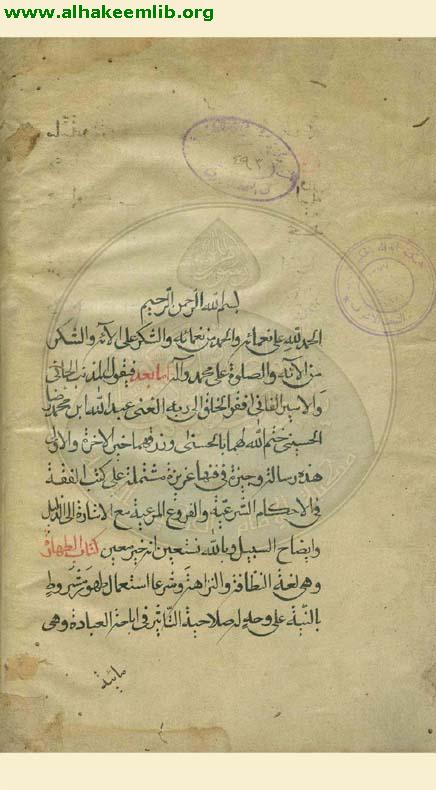 www.alhakeemlib.org
بسم الله الرحمن الرحيم
الحمد لله على نعمائه والحمد من نعمائه والشكر على آلائه والشكر
من آلائه والصلوة على محمد وآله اما بعد فيقول المذنب الجاني
والاسير الفاني افقر الخلق الى ربه الغني عبد الله ابن محمد رضا
الحسيني ختم الله لهما بالحسنى ورزقهما خير الاخرة والاولى
هذه رسالة وجيزة في فنها عزيزة مشتملة على كتب الفقه
في الاحكام الشرعية والفروع المرعية مع الاشارة الى الدليل
وايضاح السبيل وبالله نستعين انه خير معين كتاب الطهارة
وهي لغة النظافة والنزاهة وشرعا استعمال طهور مشروط
بالنية على وجه له صلاحية التأثير في اباحة العبادة وهي
مائية